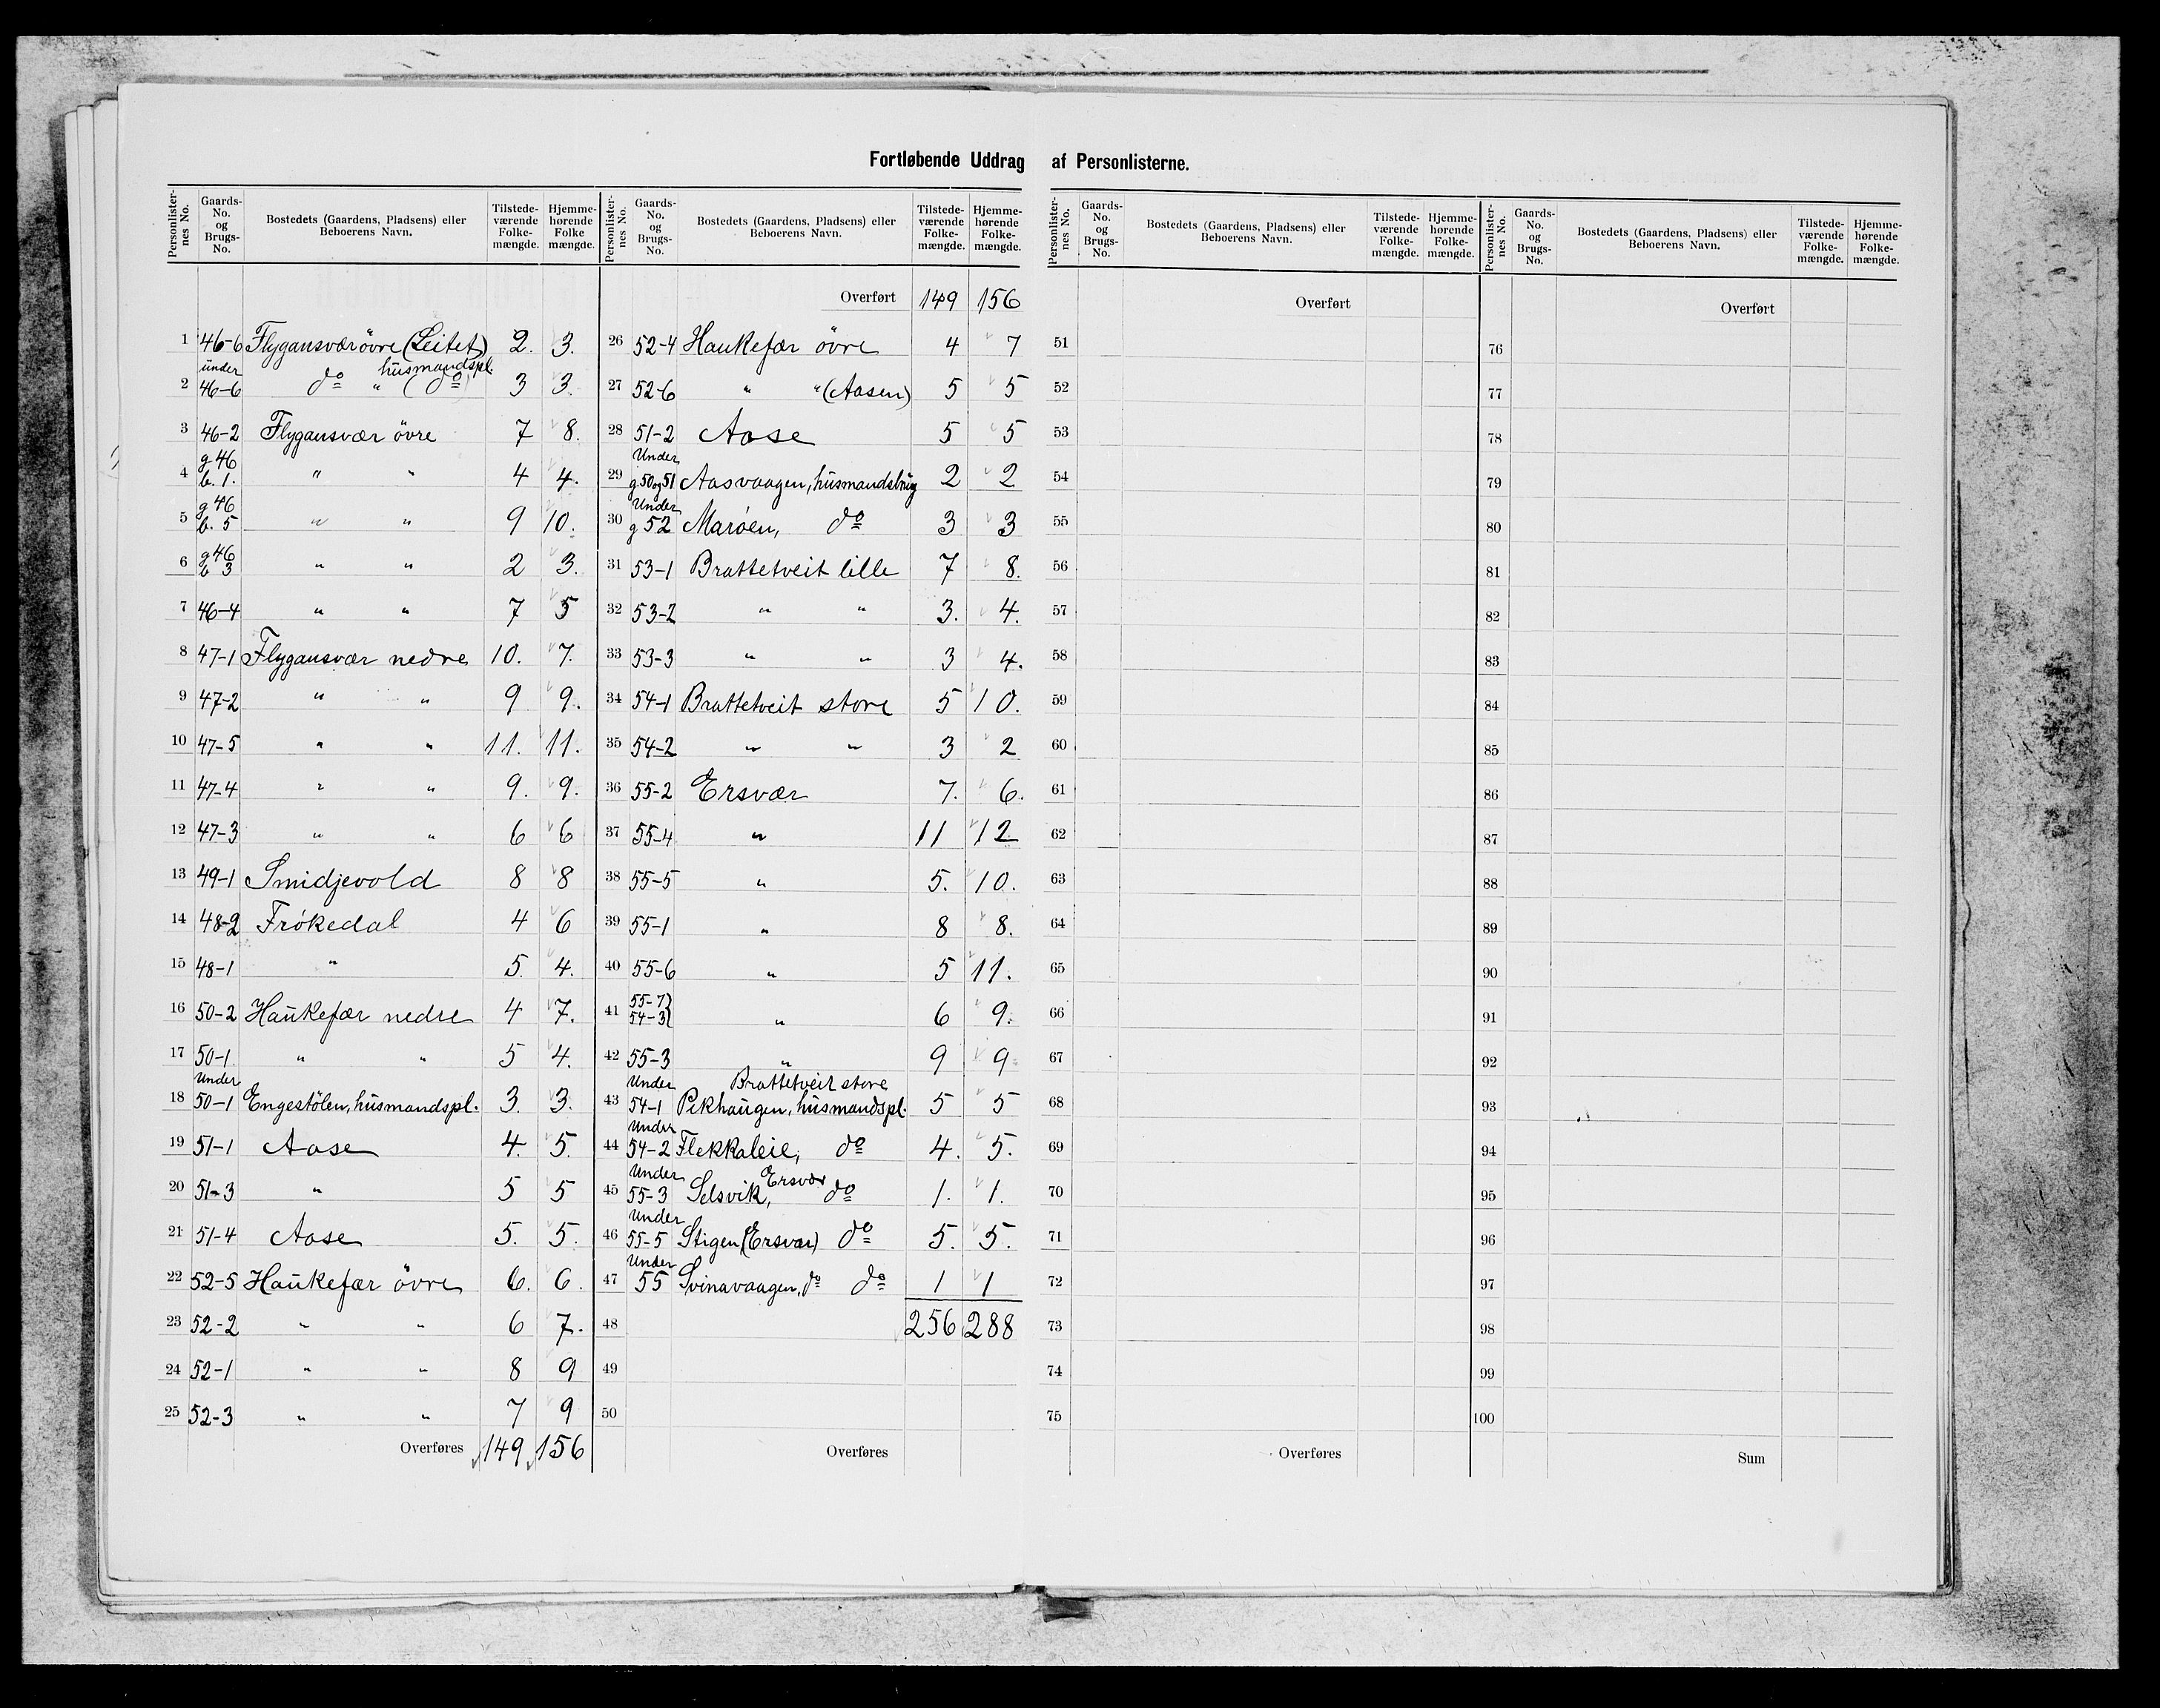 Fortløbende Uddrag af Personlisterne.
Personlister-nes No. Gaards-No. og Brugs-No. Bostedets (Gaardens, Pladsens) eller Beboerens Navn. Tilstede-værende Folke-mængde. Hjemme-hørende Folke mængde.
1 46-6 Flygansvær övre (Leitet) 2. 3.
2 under 46-6 do " (do) husmandspl. 3 3.
3 46-2 Flygansvær övre 7 8.
4 g 46 b. 1. " " 4 4.
5 g 46 b. 5 " " 9 10.
6 g 46 b 3 " " 2 3.
7 46-4 " " 7 5
8 47-1 Flygansvær nedre 10. 7.
9 47-2 " " 9 9.
10 47-5 " " 11. 11.
11 47-4 " " 9. 9.
12 47-3 " " 6 6
13 49-1 Smidjevold 8 8
14 48-2 Frökedal 4 6
15 48-1 " 5. 4.
16 50-2 Haukefær nedre 4 7.
17 50-1. " " 5 4.
18 Under 50-1 Engestölen, husmandspl. 3. 3.
19 51-1 Aase 4. 5.
20 51-3 " 5 5
21 51-4 Aase 5. 5.
22 52-5 Haukefær övre 6. 6.
23 52-2 " " 6 7.
24 52-1 " " 8 9
25 52-3 " " 7 9
Overføres 149 156
Personlister-nes No. Gaards-No. og Brugs-No. Bostedets (Gaardens, Pladsens) eller Beboerens Navn. Tilstede-værende Folke-mængde. Hjemme-hørende Folke-mængde.
Overført 149 156
26 52-4 Haukefær övre 4 7
27 52-6 " " (Aasen) 5 5
28 51-2 Aase 5 5
29 Under g. 50 og 51 Aasvaagen, husmandsbrug 2 2
30 Under g 52 Maröen, do 3 3
31 53-1 Brattetveit lille 7 8.
32 53-2 " " 3. 4.
33 53-3 " " 3 4.
34 54-1 Brattetveit store 5 10.
35 54-2 " " 3 2
36 55-2 Ersvær 7. 6.
37 55-4 " 11 12
38 55-5 " 5. 10.
39 55-1 " 8 8.
40 55-6 " 5 11.
41 55-7) 54-3) " 6 9.
42 55-3 " 9 9
43 Under 54-1 Brattetveit store Pikhaugen, husmandspl. 5 5
44 Under 54-2 Flekkaleie, do 4. 5.
45 Under 55-3 Selsvik, Ersvær do 1. 1.
46 Under 55-5 Stigen (Ersvær) do 5. 5.
47 Under 55 Svinavaagen, do do 1 1
48 256 288
49
50
Overføres
Personlister-nes No. Gaards-No. og Brugs-No. Bostedets (Gaardens, Pladsens) eller Beboerens Navn. Tilstede-værende Folke-mængde. Hjemme-hørende Folke-mængde.
Overført
51
52
53
54
55
56
57
58
59
60
61
62
63
64
65
66
67
68
69
70
71
72
73
74
75
Overføres
Personlister-nes No. Gaards-No. og Brugs-No. Bostedets (Gaardens, Pladsens) eller Beboerens Navn. Tilstede-værende Folke-mængde. Hjemme-hørende Folke-mængde.
Overført
76
77
78
79
80
81
82
83
84
85
86
87
88
89
90
91
92
93
94
95
96
97
98
99
100
Sum